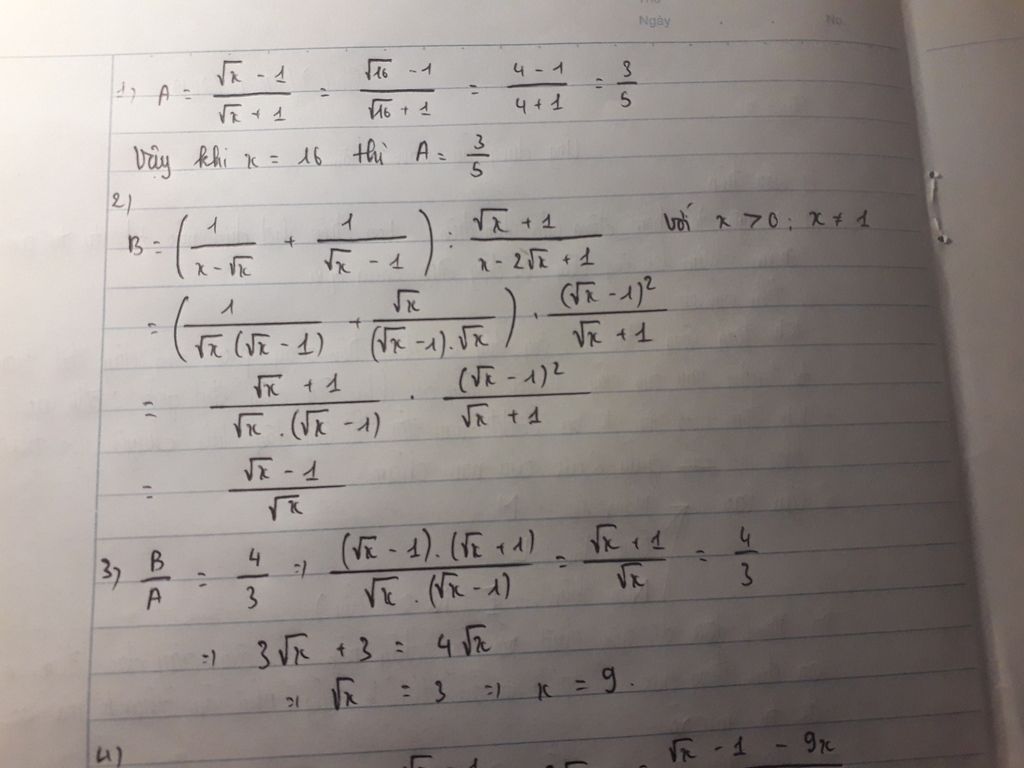 Thứ
Ngày . . No.
1, A = \frac{\sqrt{x} - 1}{\sqrt{x} + 1} = \frac{\sqrt{16} - 1}{\sqrt{16} + 1} = \frac{4 - 1}{4 + 1} = \frac{3}{5}
Vậy khi x = 16 thì A = \frac{3}{5}
2)
B = \left( \frac{1}{x - \sqrt{x}} + \frac{1}{\sqrt{x} - 1} \right) : \frac{\sqrt{x} + 1}{x - 2\sqrt{x} + 1} với x > 0 ; x ≠ 1
= \left( \frac{1}{\sqrt{x} (\sqrt{x} - 1)} + \frac{\sqrt{x}}{(\sqrt{x} - 1) . \sqrt{x}} \right) . \frac{(\sqrt{x} - 1)^2}{\sqrt{x} + 1}
= \frac{\sqrt{x} + 1}{\sqrt{x} . (\sqrt{x} - 1)} . \frac{(\sqrt{x} - 1)^2}{\sqrt{x} + 1}
= \frac{\sqrt{x} - 1}{\sqrt{x}}
3, \frac{B}{A} = \frac{4}{3} => \frac{(\sqrt{x} - 1) . (\sqrt{x} + 1)}{\sqrt{x} . (\sqrt{x} - 1)} = \frac{\sqrt{x} + 1}{\sqrt{x}} = \frac{4}{3}
=> 3\sqrt{x} + 3 = 4\sqrt{x}
=> \sqrt{x} = 3 => x = 9.
4) \sqrt{x} - 1 - 9x